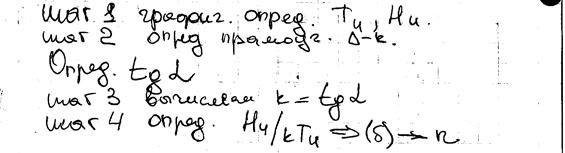 шаг 1 график. опред. Tu, Hu.
шаг 2 опред прямоуг. Δ-к.
Опред. tg α
шаг 3 вычисляем k = tg α
шаг 4 опред. Hu/kTu ⇒ (δ) → n